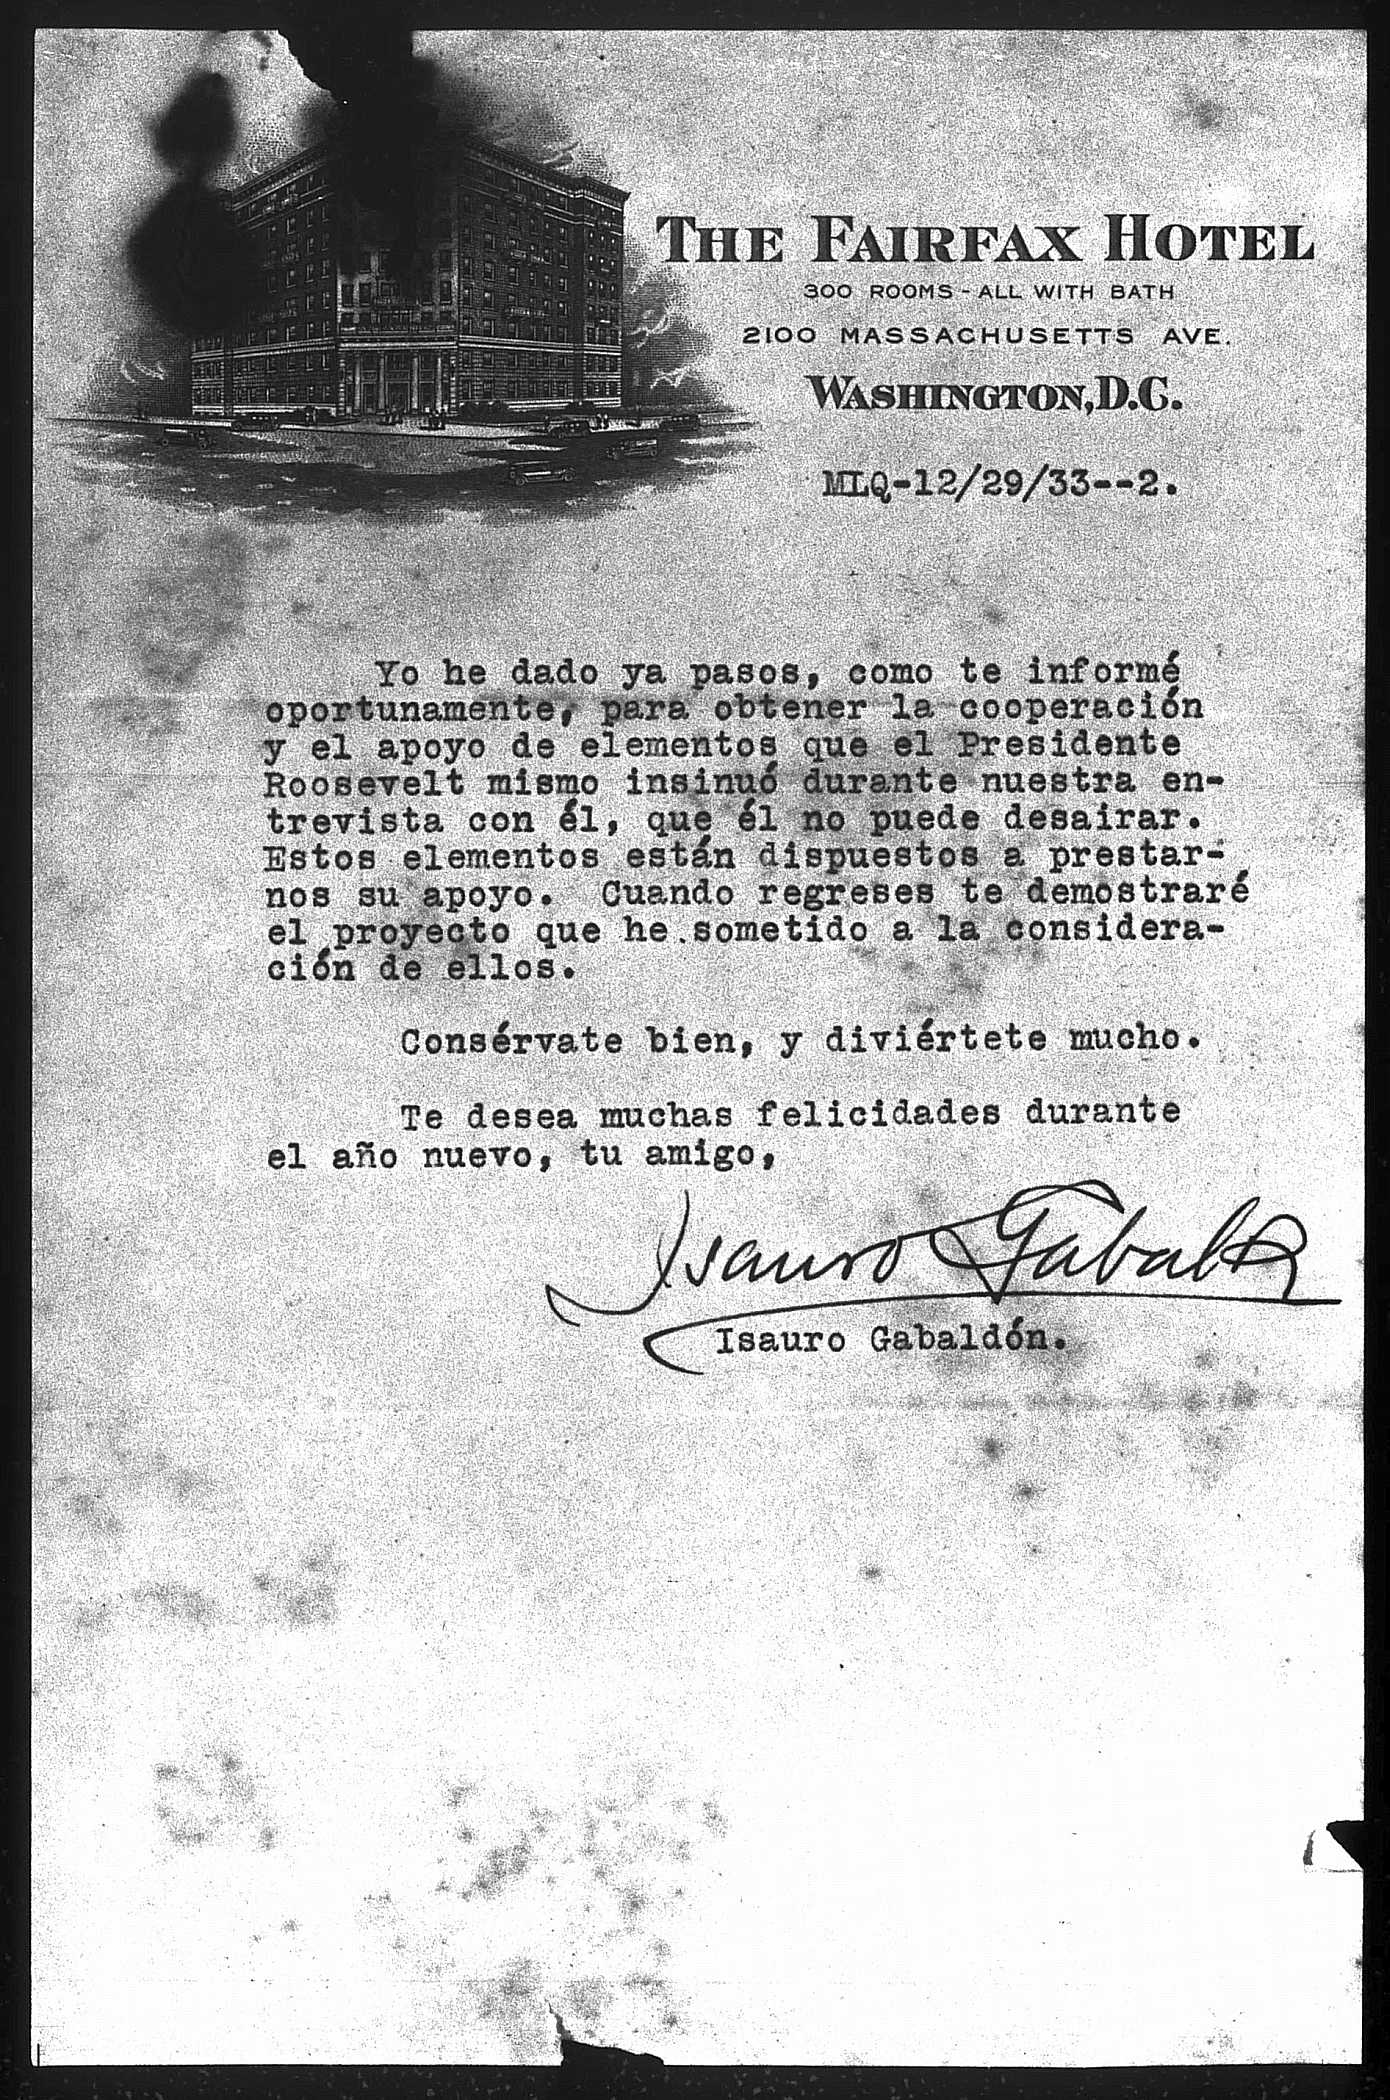 THE FAIRFAX HOTEL
300 ROOMS - ALL WITH BATH
2100 MASSACHUSETTS AVE.
WASHINGTON, D.C.
MLQ-12/29/33--2.
Yo he dado ya pasos, como te informé
oportunamente, para obtener la cooperación
y el apoyo de elementos que el Presidente
Roosevelt mismo insinuó durante nuestra en-
trevista con él, que él no puede desairar.
Estos elementos están dispuestos a prestar-
nos su apoyo. Cuando regreses te demostraré
el proyecto que he sometido a la considera-
ción de ellos.
Consérvate bien, y diviértete mucho.
Te desea muchas felicidades durante
el año nuevo, tu amigo,
Isauro Gabaldón
Isauro Gabaldón.